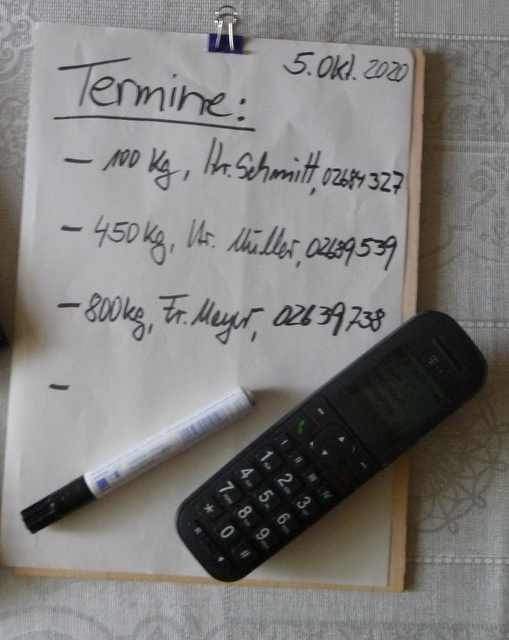 5. Okt. 2020
Termine:
– 100 Kg, Hr. Schmitt, 02684327
– 450 Kg, Hr. Müller, 02689539
– 800 kg, Fr. Meyer, 02639738
–
1 2 3
4 5 6
7 8 9
* 0 #